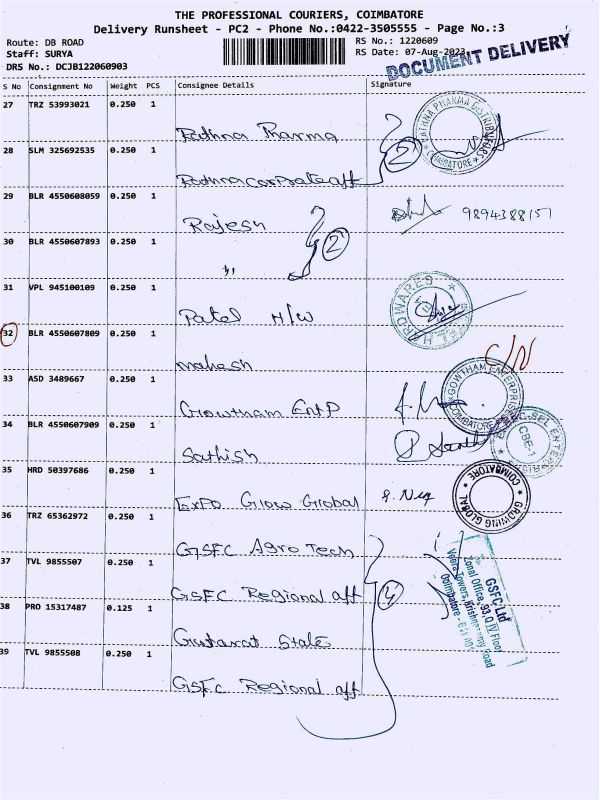 THE PROFESSIONAL COURIERS, COIMBATORE
Delivery Runsheet - PC2 - Phone No.:0422-3505555 - Page No.:3
Route: DB ROAD
RS No.: 1220609
Staff: SURYA
RS Date: 07-Aug-2023
DOCUMENT DELIVERY
DRS No.: DCJB122060903
S No Consignment No Weight PCS Consignee Details Signature
27 TRZ 53993021 0.250 1
Rathna Pharma
28 SLM 325692535 0.250 1
2
Rathna corporate off
29 BLR 4550608059 0.250 1
Rajesh
9894388151
30 BLR 4550607893 0.250 1
2
"
31 VPL 945100109 0.250 1
Patel H/W
32 BLR 4550607809 0.250 1
mahesh
C/N
33 ASD 3489667 0.250 1
Gowtham Ent P
GOWTHAM ENTERPRISE
COIMBATORE
34 BLR 4550607909 0.250 1
Sathish
CBE-1
35 HRD 50397686 0.250 1
Expo Grow Global
COIMBATORE
GROWING GLOBAL
36 TRZ 65362972 0.250 1
GSFC Agro Tech
37 TVL 9855507 0.250 1
GSFC Regional off
4
GSFC Ltd
Zonal Office, 93,Q IV Floor
Veera Towers, Krishnasamy Road
Coimbatore - 641 001
38 PRO 15317487 0.125 1
Gujarat State
39 TVL 9855508 0.250 1
GSFC Regional off